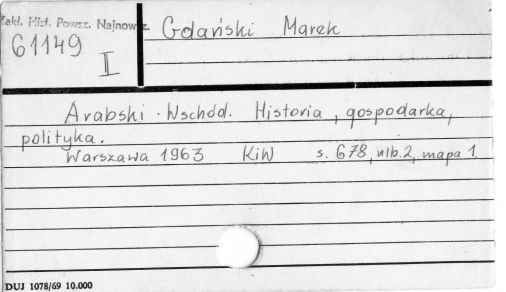 Zakł. Hist. Powsz. Najnow
61149
II
Gdański Marek
Arabski Wschód. Historia, gospodarka,
polityka.
Warszawa 1963 KiW s. 678, nlb. 2, mapa 1.
DUJ 1078/69 10.000